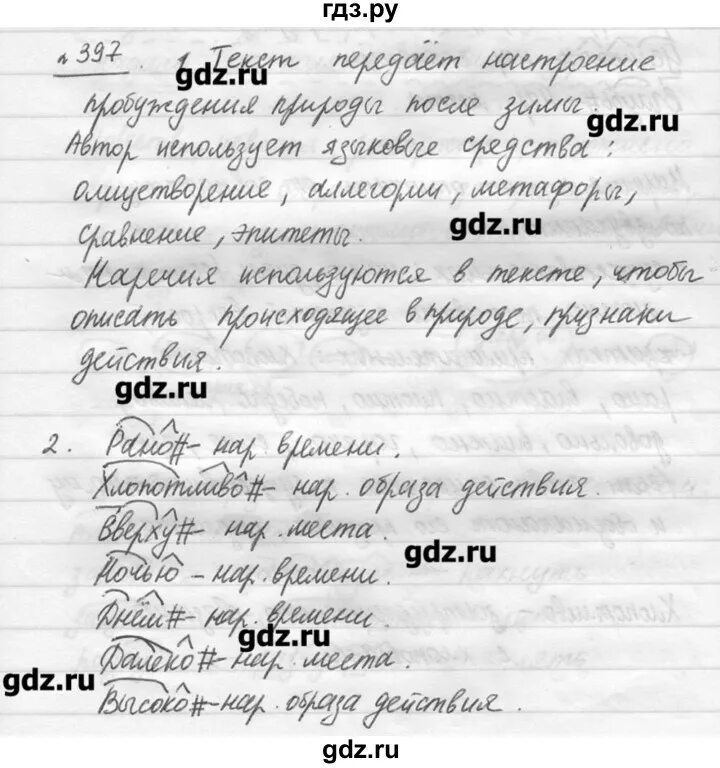 гдз.ру
№397. 1. Текст передаёт настроение
gdz.ru
пробуждения природы после зимы.
gdz.ru
Автор использует языковые средства:
олицетворение, аллегории, метафоры,
сравнение, эпитеты.
gdz.ru
Наречия используются в тексте, чтобы
описать происходящее в природе, признаки
действия.
gdz.ru
2. Рано# - нар. времени.
Хлопотливо# - нар. образа действия.
Вверху# - нар. места.
gdz.ru
Ночью - нар. времени.
Днём# - нар. времени.
gdz.ru
Далеко# - нар. места.
gdz.ru
Высоко# - нар. образа действия.
gdz.ru